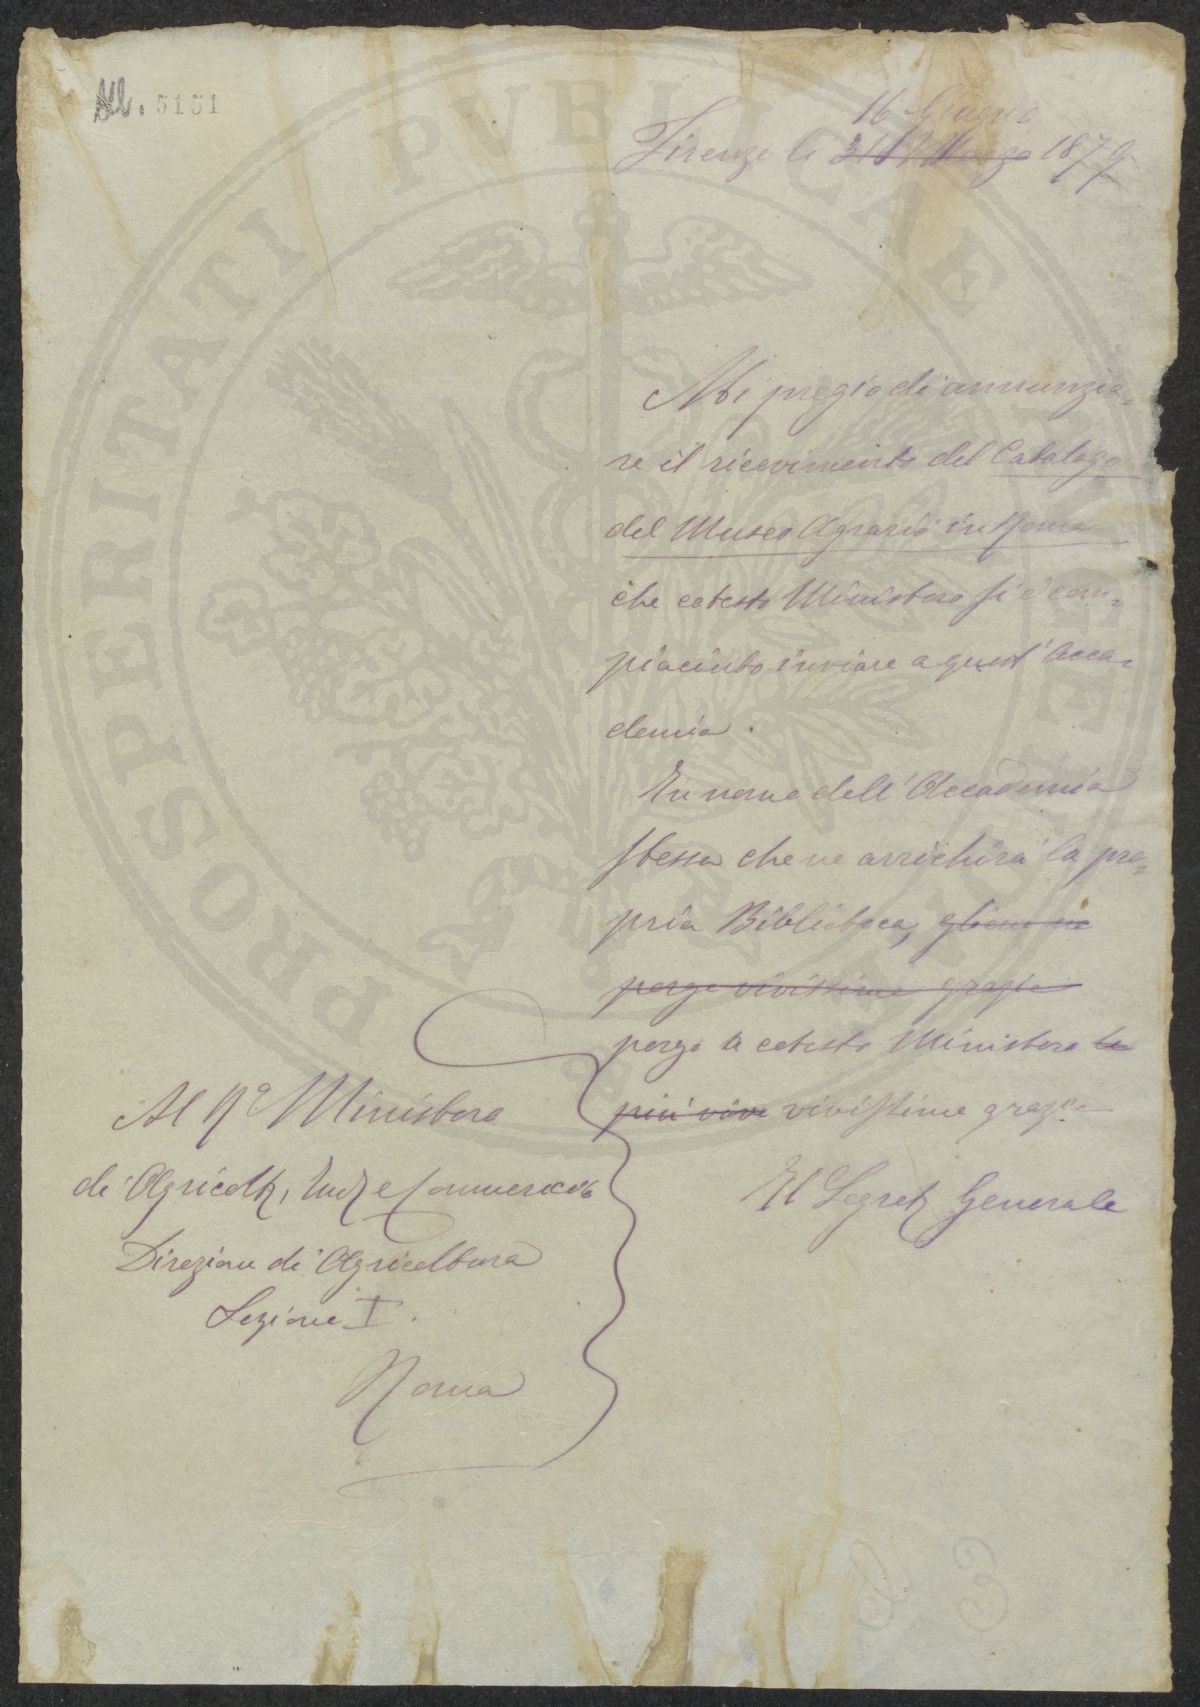 All. 5151
16 Giugno
Firenze li 31 Marzo 1879
Mi pregio di annunzia-
re il ricevimento del Catalogo
del Museo Agrario in Roma
che cotesto Ministero si è com-
piaciuto inviare a quest'Acca-
demia.
In nome dell'Accademia
stessa che ne arrichirà la pro-
pria Biblioteca,
porge vivissime grazie
porgo a cotesto Ministero le
più vive vivissime grazie
Il Segret Generale
Al R.o Ministero
di Agricolt, Ind e Commercio
Direzione di Agricoltura
Sezione I.
Roma
PROSPERITATI PVBLICAE